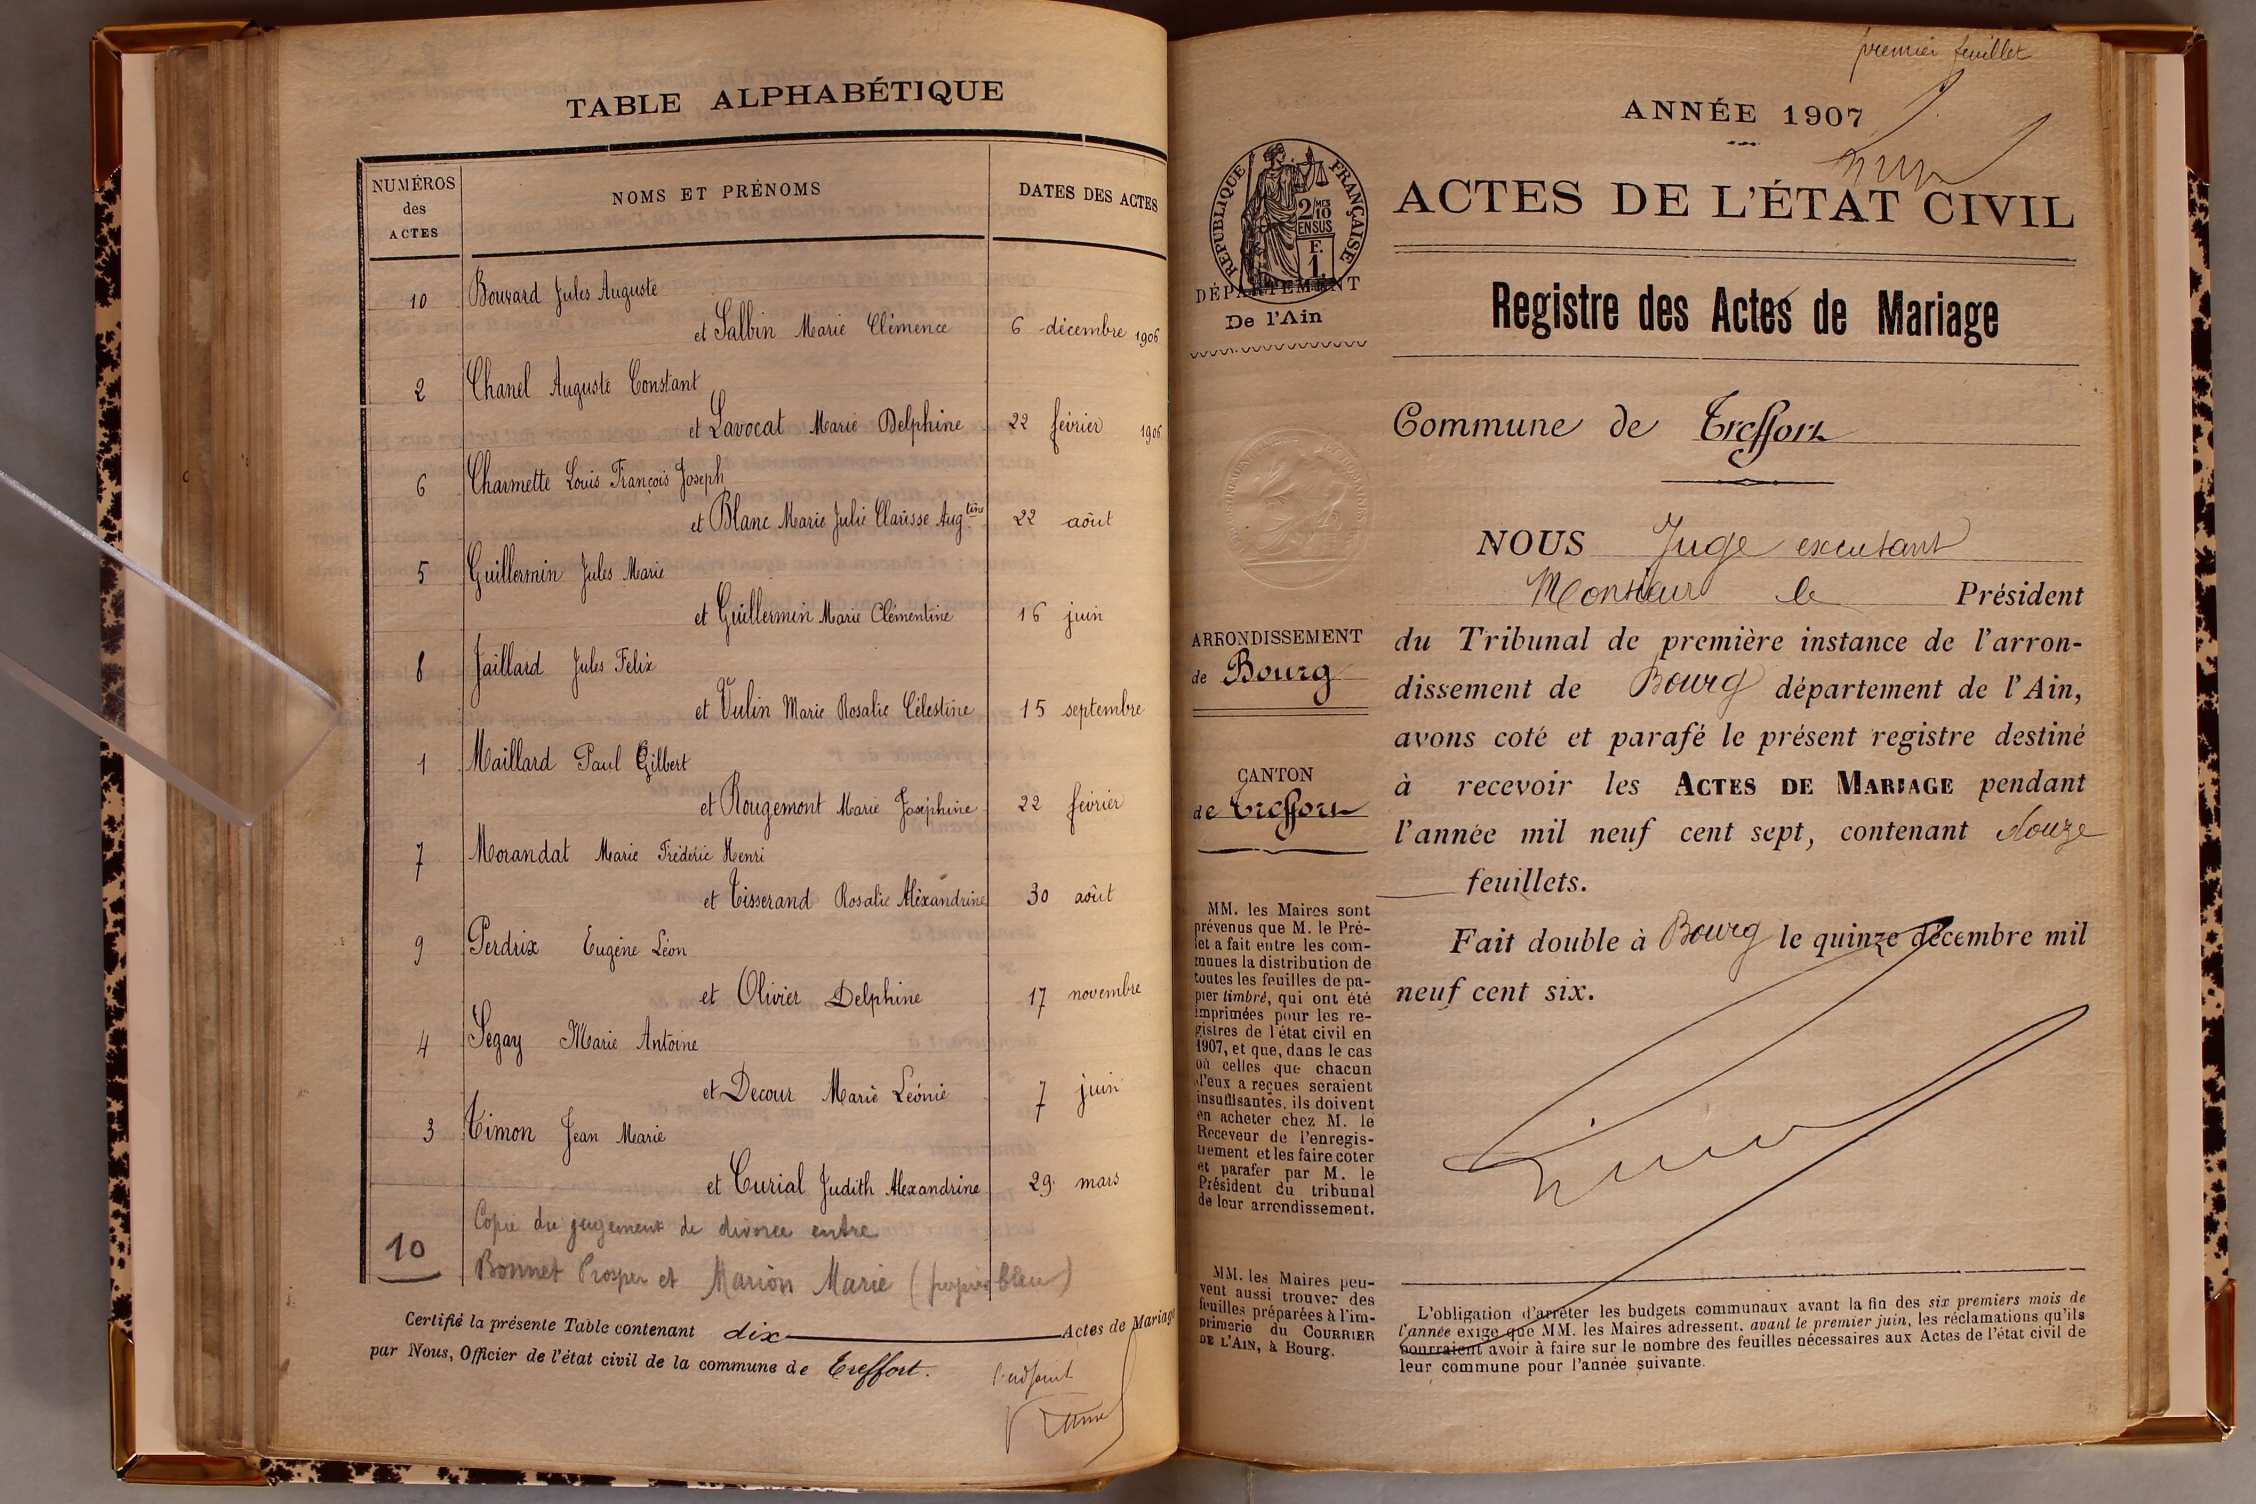 TABLE ALPHABÉTIQUE
NUMÉROS
des
ACTES
NOMS ET PRÉNOMS
DATES DES ACTES
10 Bouvard Jules Auguste
et Salbin Marie Clémence 6 décembre 1906
2 Chanel Auguste Constant
et Lavocat Marie Delphine 22 février 1906
6 Charmette Louis François Joseph
et Blanc Marie Julie Clarisse Aug.tine 22 août
5 Guillermin Jules Marie
et Guillermin Marie Clémentine 16 juin
8 Jaillard Jules Felix
et Vulin Marie Rosalie Célestine 15 septembre
1 Maillard Paul Gilbert
et Rougemont Marie Joséphine 22 février
7 Morandat Marie Fréderic Henri
et Tisserand Rosalie Aléxandrine 30 août
9 Perdrix Eugène Léon
et Olivier Delphine 17 novembre
4 Segay Marie Antoine
et Decour Marie Léonie 7 juin
3 Timon Jean Marie
et Curial Judith Alexandrine 29 mars
Copie du jugement de divorce entre
10 Bonnet Prosper et Marion Marie (papier bleu)
Certifié la présente Table contenant dix Actes de Mariage
par Nous, Officier de l'état civil de la commune de Treffort.
l'adjoint
premier feuillet
ANNÉE 1907
RÉPUBLIQUE FRANÇAISE
2/10 MES
EN SUS
F.
1.
ACTES DE L'ÉTAT CIVIL
DÉPARTEMENT
De l'Ain
Registre des Actes de Mariage
Commune de Treffort
NOUS Juge excusant
Monsieur le Président
du Tribunal de première instance de l'arron-
dissement de Bourg département de l'Ain,
avons coté et parafé le présent registre destiné
à recevoir les ACTES DE MARIAGE pendant
l'année mil neuf cent sept, contenant douze
feuillets.
Fait double à Bourg le quinze décembre mil
neuf cent six.
ARRONDISSEMENT
de Bourg
CANTON
de Treffort
MM. les Maires sont
prévenus que M. le Pré-
fet a fait entre les com-
munes la distribution de
toutes les feuilles de pa-
pier timbré, qui ont été
imprimées pour les re-
gistres de l'état civil en
1907, et que, dans le cas
où celles que chacun
d'eux a reçues seraient
insuffisantes, ils doivent
en acheter chez M. le
Receveur de l'enregis-
trement et les faire coter
et parafer par M. le
Président du tribunal
de leur arrondissement.
MM. les Maires peu-
vent aussi trouver des
feuilles préparées à l'im-
primerie du COURRIER
DE L'AIN, à Bourg.
L'obligation d'arrêter les budgets communaux avant la fin des six premiers mois de
l'année exige que MM. les Maires adressent, avant le premier juin, les réclamations qu'ils
pourraient avoir à faire sur le nombre des feuilles nécessaires aux Actes de l'état civil de
leur commune pour l'année suivante.